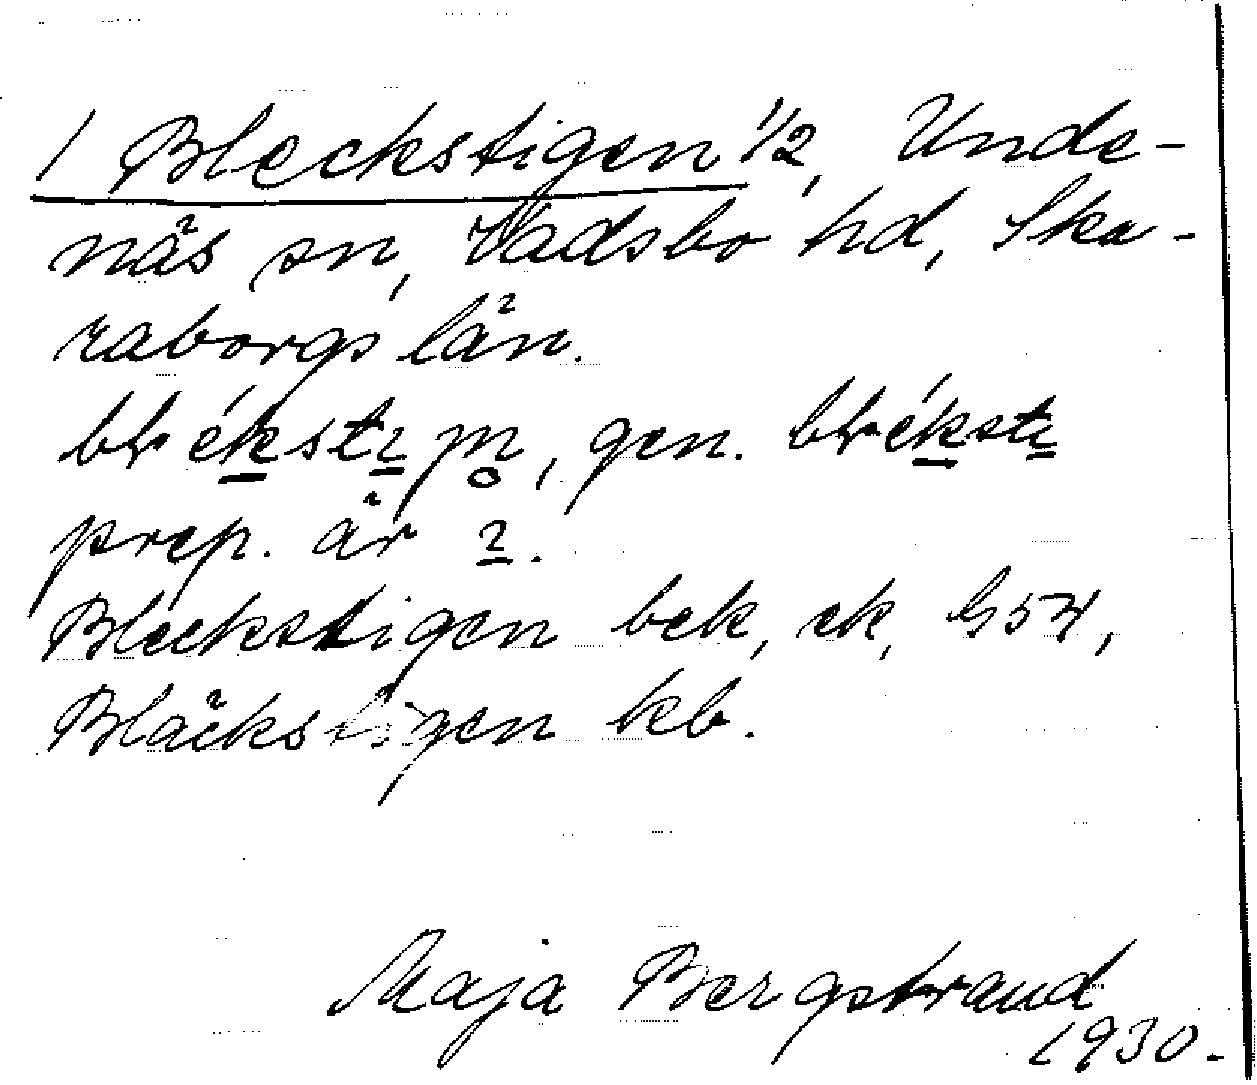 1 Bleckstigen 1/2, Unde-
näs sn, Vadsbo hd, Ska-
raborgs län.
gen.
prep. är
Bleckstigen bek, ek, G54,
Bläckstigen kb.
Maja Bergstrand
1930.